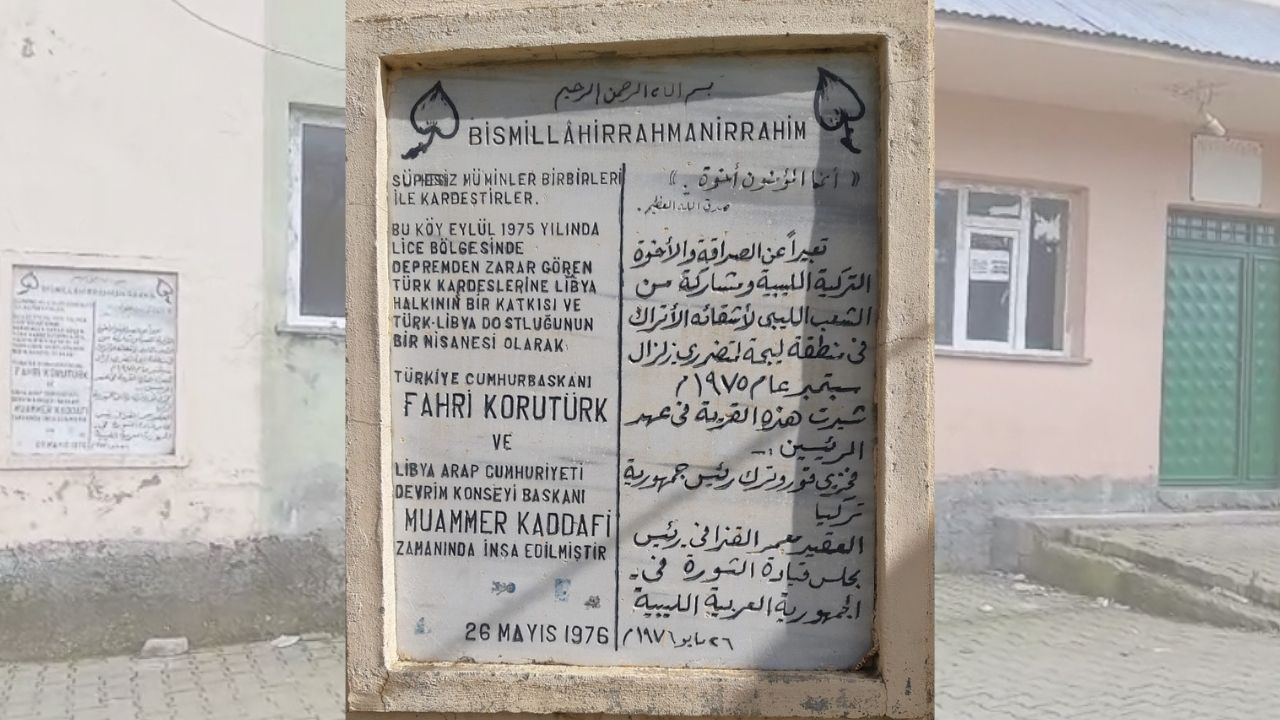 بسم الله الرحمن الرحيم
BİSMİLLÂHİRRAHMANİRRAHİM
SÜPHESİZ MÜMİNLER BİRBİRLERİ
İLE KARDEŞTİRLER.
BU KÖY EYLÜL 1975 YILINDA
LİCE BÖLGESİNDE
DEPREMDEN ZARAR GÖREN
TÜRK KARDEŞLERİNE LİBYA
HALKININ BİR KATKISI VE
TÜRK-LİBYA DOSTLUĞUNUN
BİR NİSANESİ OLARAK
TÜRKİYE CUMHURBASKANI
FAHRİ KORUTÜRK
VE
LİBYA ARAP CUMHURİYETİ
DEVRİM KONSEYİ BASKANI
MUAMMER KADDAFİ
ZAMANINDA İNSA EDİLMİŞTİR
26 MAYIS 1976
« أنما المؤمنون أخوة . »
صدق الله العظيم .
تعبيراً عن الصداقة والأخوة
التركية الليبية ومشاركة من
الشعب الليبى لأشقائه الأتراك
فى منطقة ليجة لمتضررى زلزال
سبتمبر عام ١٩٧٥م
شيدت هذه القرية فى عهد
الرئيسين :ـ
فخرى قوروترك رئيس جمهورية
تركيا
العقيد معمر القذافى رئيس
مجلس قيادة الثورة فى
الجمهورية العربية الليبية
٢٦ مايو ١٩٧٦م
BİSMİLLÂHİRRAHMANİRRAHİM
FAHRİ KORUTÜRK
VE
MUAMMER KADDAFİ
26 MAYIS 1976